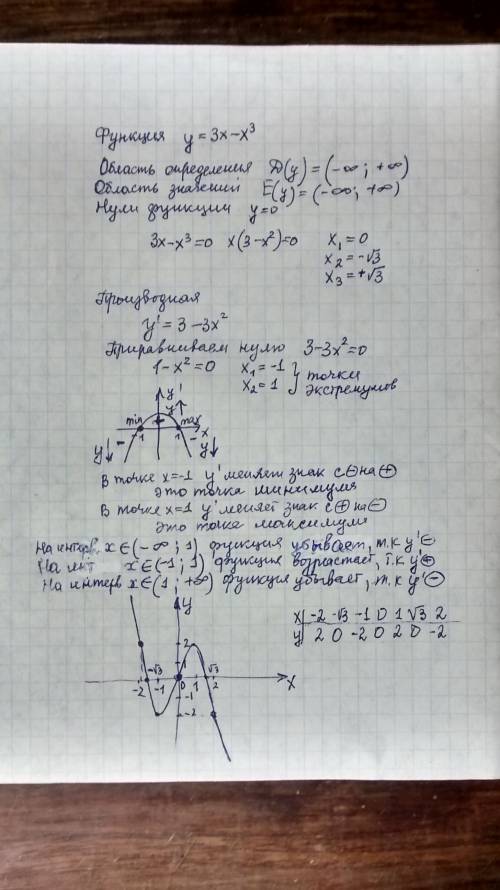 Функция y = 3x – x³
Область определения D(y) = (-∞; +∞)
Область значений E(y) = (-∞; +∞)
Нули функции y=0
3x-x³=0 x(3-x²)=0 x₁ = 0
x₂ = -√3
x₃ = +√3
Производная
y' = 3 – 3x²
Приравниваем нулю 3-3x²=0
1-x²=0 x₁ = -1
x₂ = 1
точки
экстремумов
y'
y
min + max
-1 1 x
y – – y
В точке x=-1 y' меняет знак с ⊖ на ⊕
это точка минимума
В точке x=1 y' меняет знак с ⊕ на ⊖
это точка максимума
На интерв. x∈(-∞; 1) функция убывает, т.к y' ⊖
На инт x∈(-1; 1) функция возрастает, т.к y' ⊕
На интерв x∈(1; +∞) функция убывает, т.к y' ⊖
y
x -2 -√3 -1 0 1 √3 2
y 2 0 -2 0 2 0 -2
2
1
-√3 √3
-2 -1 0 1 2 x
-1
-2